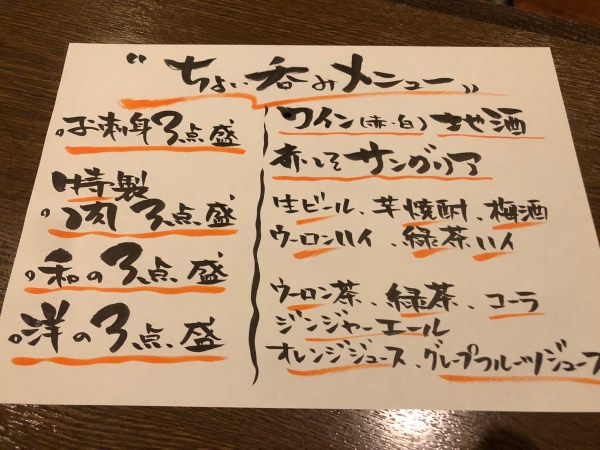 “ちょい呑みメニュー”
。お刺身3点盛
特製
。肉3点盛
。和の3点盛
。洋の3点盛
ワイン(赤・白) させ酒
赤しそサングリア
生ビール、芋焼酎、梅酒
ウーロンハイ、緑茶ハイ
ウーロン茶、緑茶、コーラ
ジンジャーエール
オレンジジュース、グレープフルーツジュース